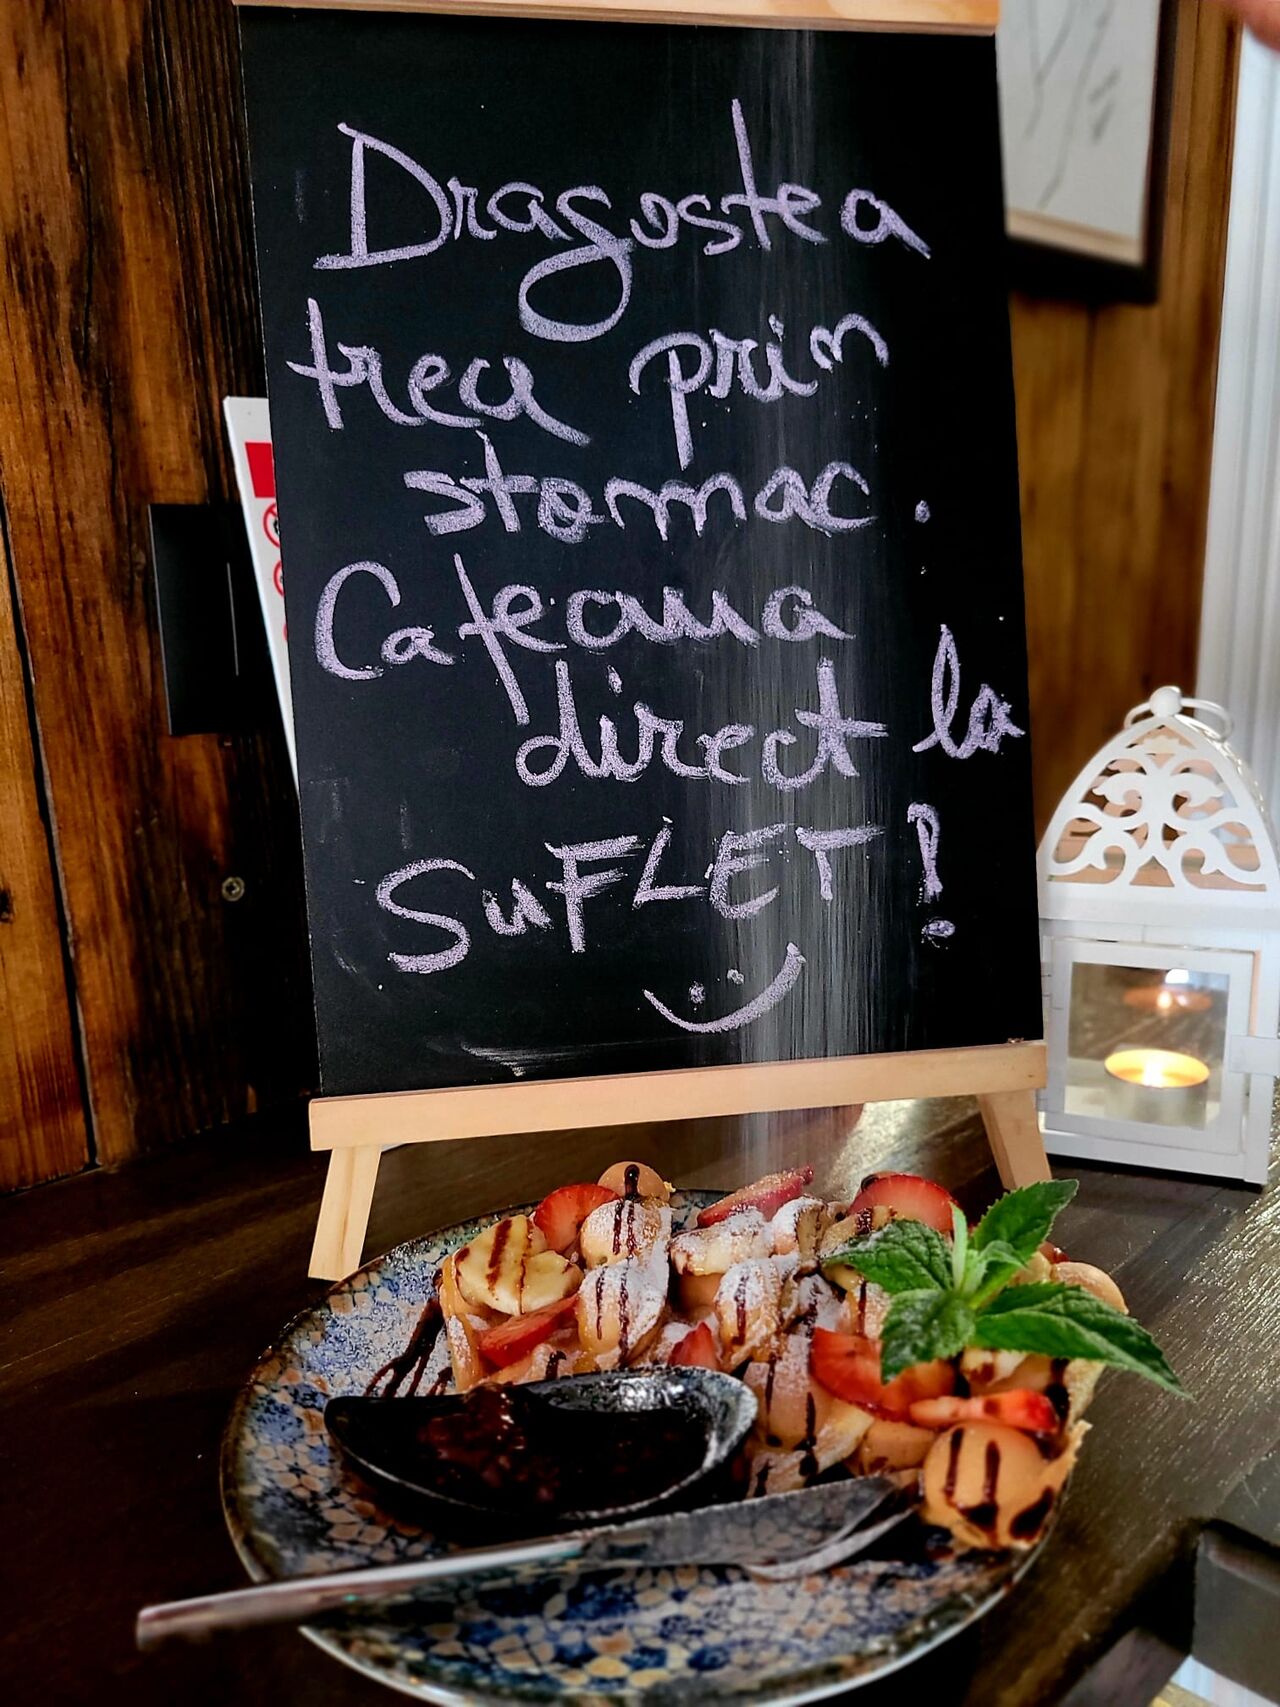 Dragostea
trea prin
stomac.
Cafeaua
direct la
SuFLET!